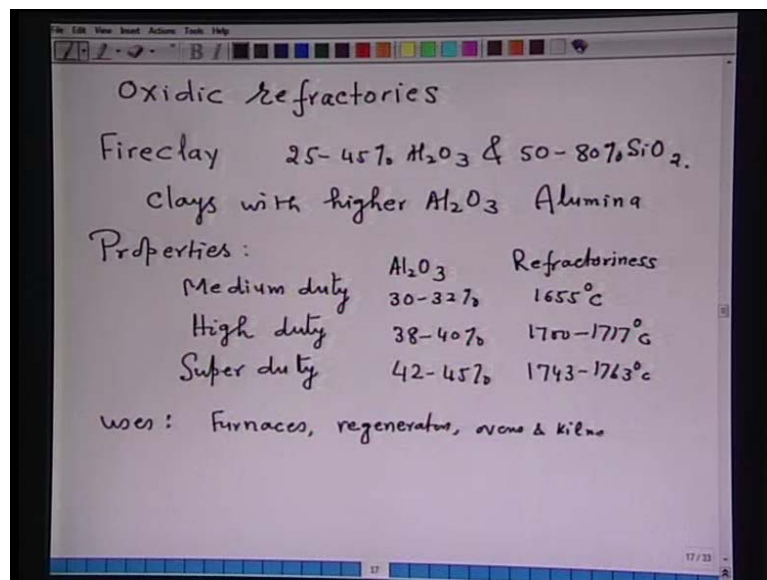 File Edit View Insert Actions Tools Help
B I
Oxidic refractories
Fireclay 25-45% Al2O3 & 50-80% SiO2.
Clays with higher Al2O3 Alumina
Properties:
Al2O3 Refractoriness
Medium duty 30-32% 1655°C
High duty 38-40% 1700-1717°C
Super duty 42-45% 1743-1763°C
uses: Furnaces, regenerators, ovens & kilns
17/33
17